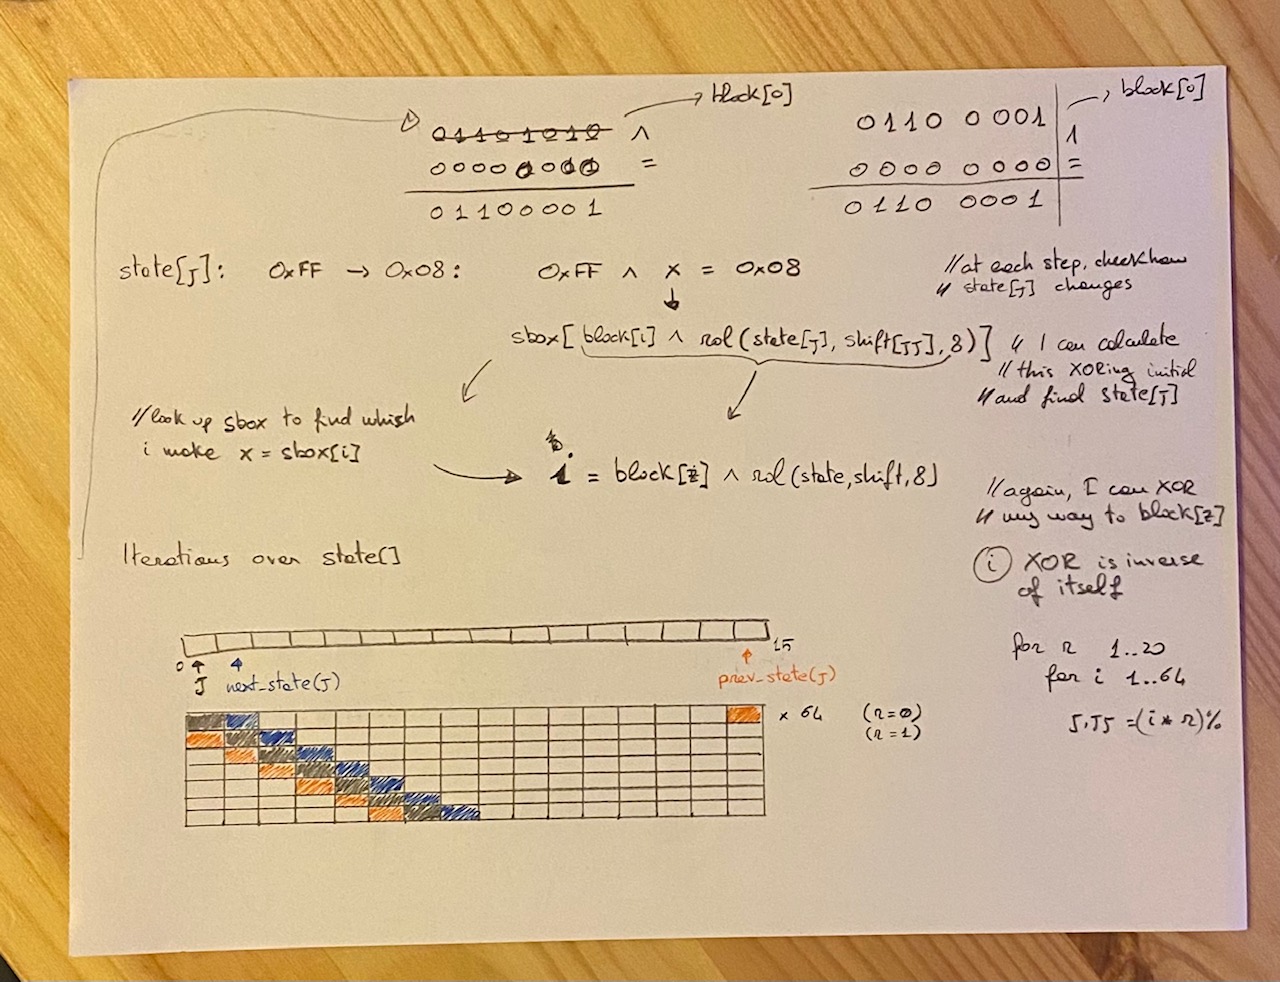 block[0]
01101010 ^
0000 0000 =
01100001
block[0]
0110 0001 ^
0000 0000 =
0110 0001
state[J]: 0xFF → 0x08: 0xFF ^ x = 0x08
// at each step, check how
// state[J] changes
sbox[ block[i] ^ rol(state[J], shift[JJ], 8)]
// I can calculate
// this XORing initial
// and find state[J]
// look up sbox to find which
i make x = sbox[i]
i = block[z] ^ rol(state, shift, 8)
// again, I can XOR
// my way to block[z]
i XOR is inverse
of itself
Iterations over state[]
0 15
J next_state(J) prev_state(J)
x 64 (r=0)
(r=1)
for r 1..20
for i 1..64
J,JJ =(i * r)%